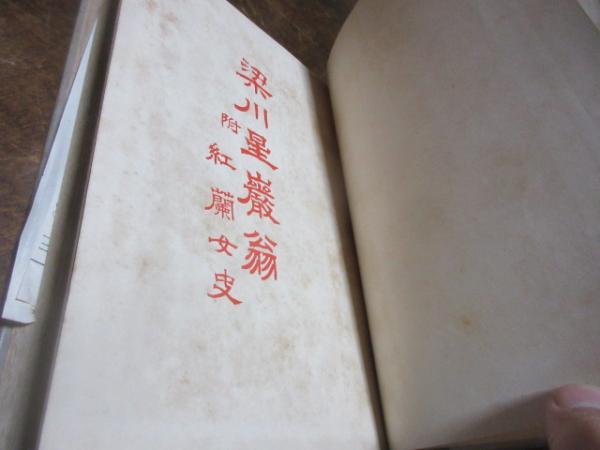 梁川星巖翁
附 紅蘭女史